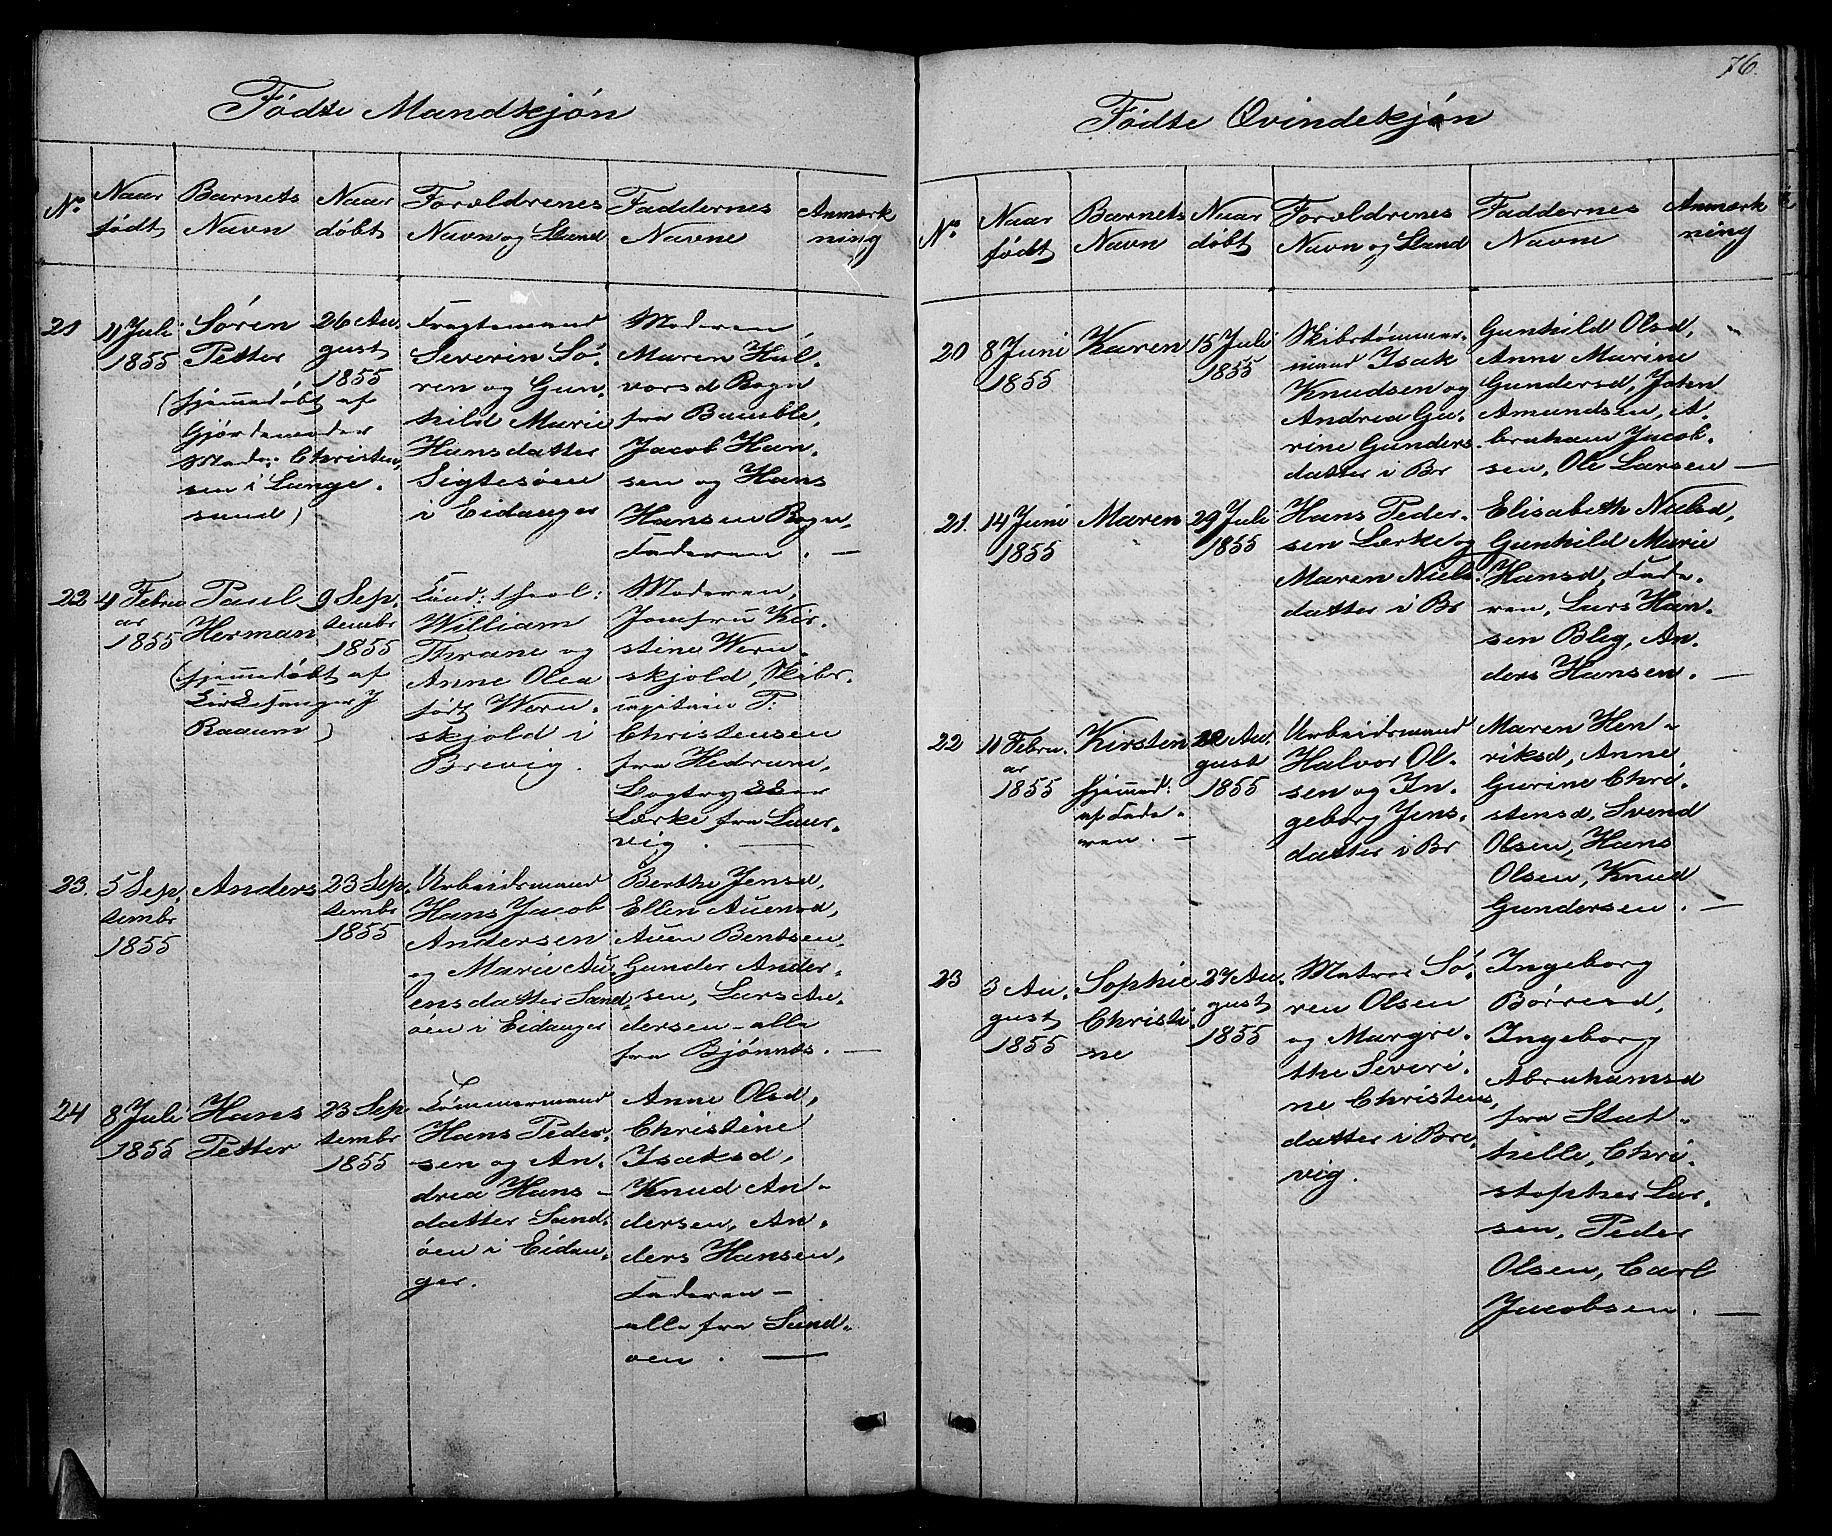 Fødte Mandkjøn
No
Naar
født
Barnets
Navn
Naar
døbt
Forældrenes
Navn og Stand
Faddernes
Navne
Anmærk
ning
21
11 Juli
1855
Søren
Petter
(hjemmedøbt af
Gjordemoder
Mad: Christen,
sen i Lange,
sund)
26 Au,
gust
1855
Fragtemand
Severin Sø,
ren og Gun,
hild Marie
Hansdatter
Sigtesøen
i Eidanger
Moderen,
Maren Hal,
vorsd Bogn
fra Bamble,
Jacob Han,
sen og Hans
Hansen Bogn,
Faderen. —
22
4 Febru
ar
1855
Paul
Herman
(hjemmedøbt af
Kirkesanger J
Raaum)
9 Sep,
tembr
1855
Cand: theol:
William
Thrane og
Anne Olea
født Wern,
skjold i
Brevig.
Moderen,
Jomfru Kir,
stine Wern,
skjold, Skibs,
capitain T:
Christensen
fra Hedrum,
Bogtrykker
Lærke fra Laur,
vig. —
23.
5 Sep,
tembr
1855
Anders
23 Sep,
tembr
1855
Arbeidsmand
Hans Jacob
Andersen
og Marie Au,
ensdatter Sand,
øen i Eidanger
Berthe Jensd,
Ellen Auensd,
Auen Bentsen,
Gunder Ander,
sen, Lars An,
dersen – alle
fra Bjønnes. —
24
8 Juli
1855
Hans
Petter
23 Sep
tembr
1855
Tømmermand
Hans Peder,
sen og An,
drea Hans –
datter Sand,
øen i Eidan,
ger.
Anne Olsd,
Christine
Isaksd,
Knud An –
dersen, An,
ders Hansen,
Faderen –
alle fra Sand,
øen. —
76.
Fødte Qvindekjøn
No
Naar
født
Barnets
Navn
Naar
døbt
Forældrenes
Navn og Stand
Faddernes
Navne
Anmærk
ning
20
8 Juni
1855
Karen
15 Juli
1855
Skibstømmer,
mand Isak
Knudsen og
Andrea Gu,
rine Gunders,
datter i Br
Gunhild Olsd,
Anne Marine
Gundersd, John
Amundsen, A,
braham Jacob,
sen, Ole Larsen —
21.
14 Juni
1855
Maren
29 Juli
1855
Hans Peder,
sen Lærke og
Maren Niels,
datter i Br
Elisabeth Nielsd,
Gunhild Marie
Hansd, Fade,
ren, Lars Han,
sen Bleg, An,
ders Hansen. —
22
11 Febru,
ar
1855
Kirsten
hjemmed:
af Fade,
ren. —
Au,
gust
1855
Arbeidsmand
Halvor Ol,
sen og In,
geborg Jens,
datter i Br
Maren Hen,
riksd, Anne
Gurine Chri,
stensd, Svend
Olsen, Hans
Olsen, Knud
Gundersen. —
23
3 Au,
gust
1855
Sophie
Christi,
ne
27 Au,
gust
1855
Matros Sø,
ren Olsen
og Margre,
the Severi,
ne Christens,
datter i Bre,
vig.
Ingeborg
Børresd,
Ingeborg
Abrahamsd
fra Stat –
helle, Chri,
stopher Lar,
sen, Peder
Olsen, Carl
Jacobsen. —